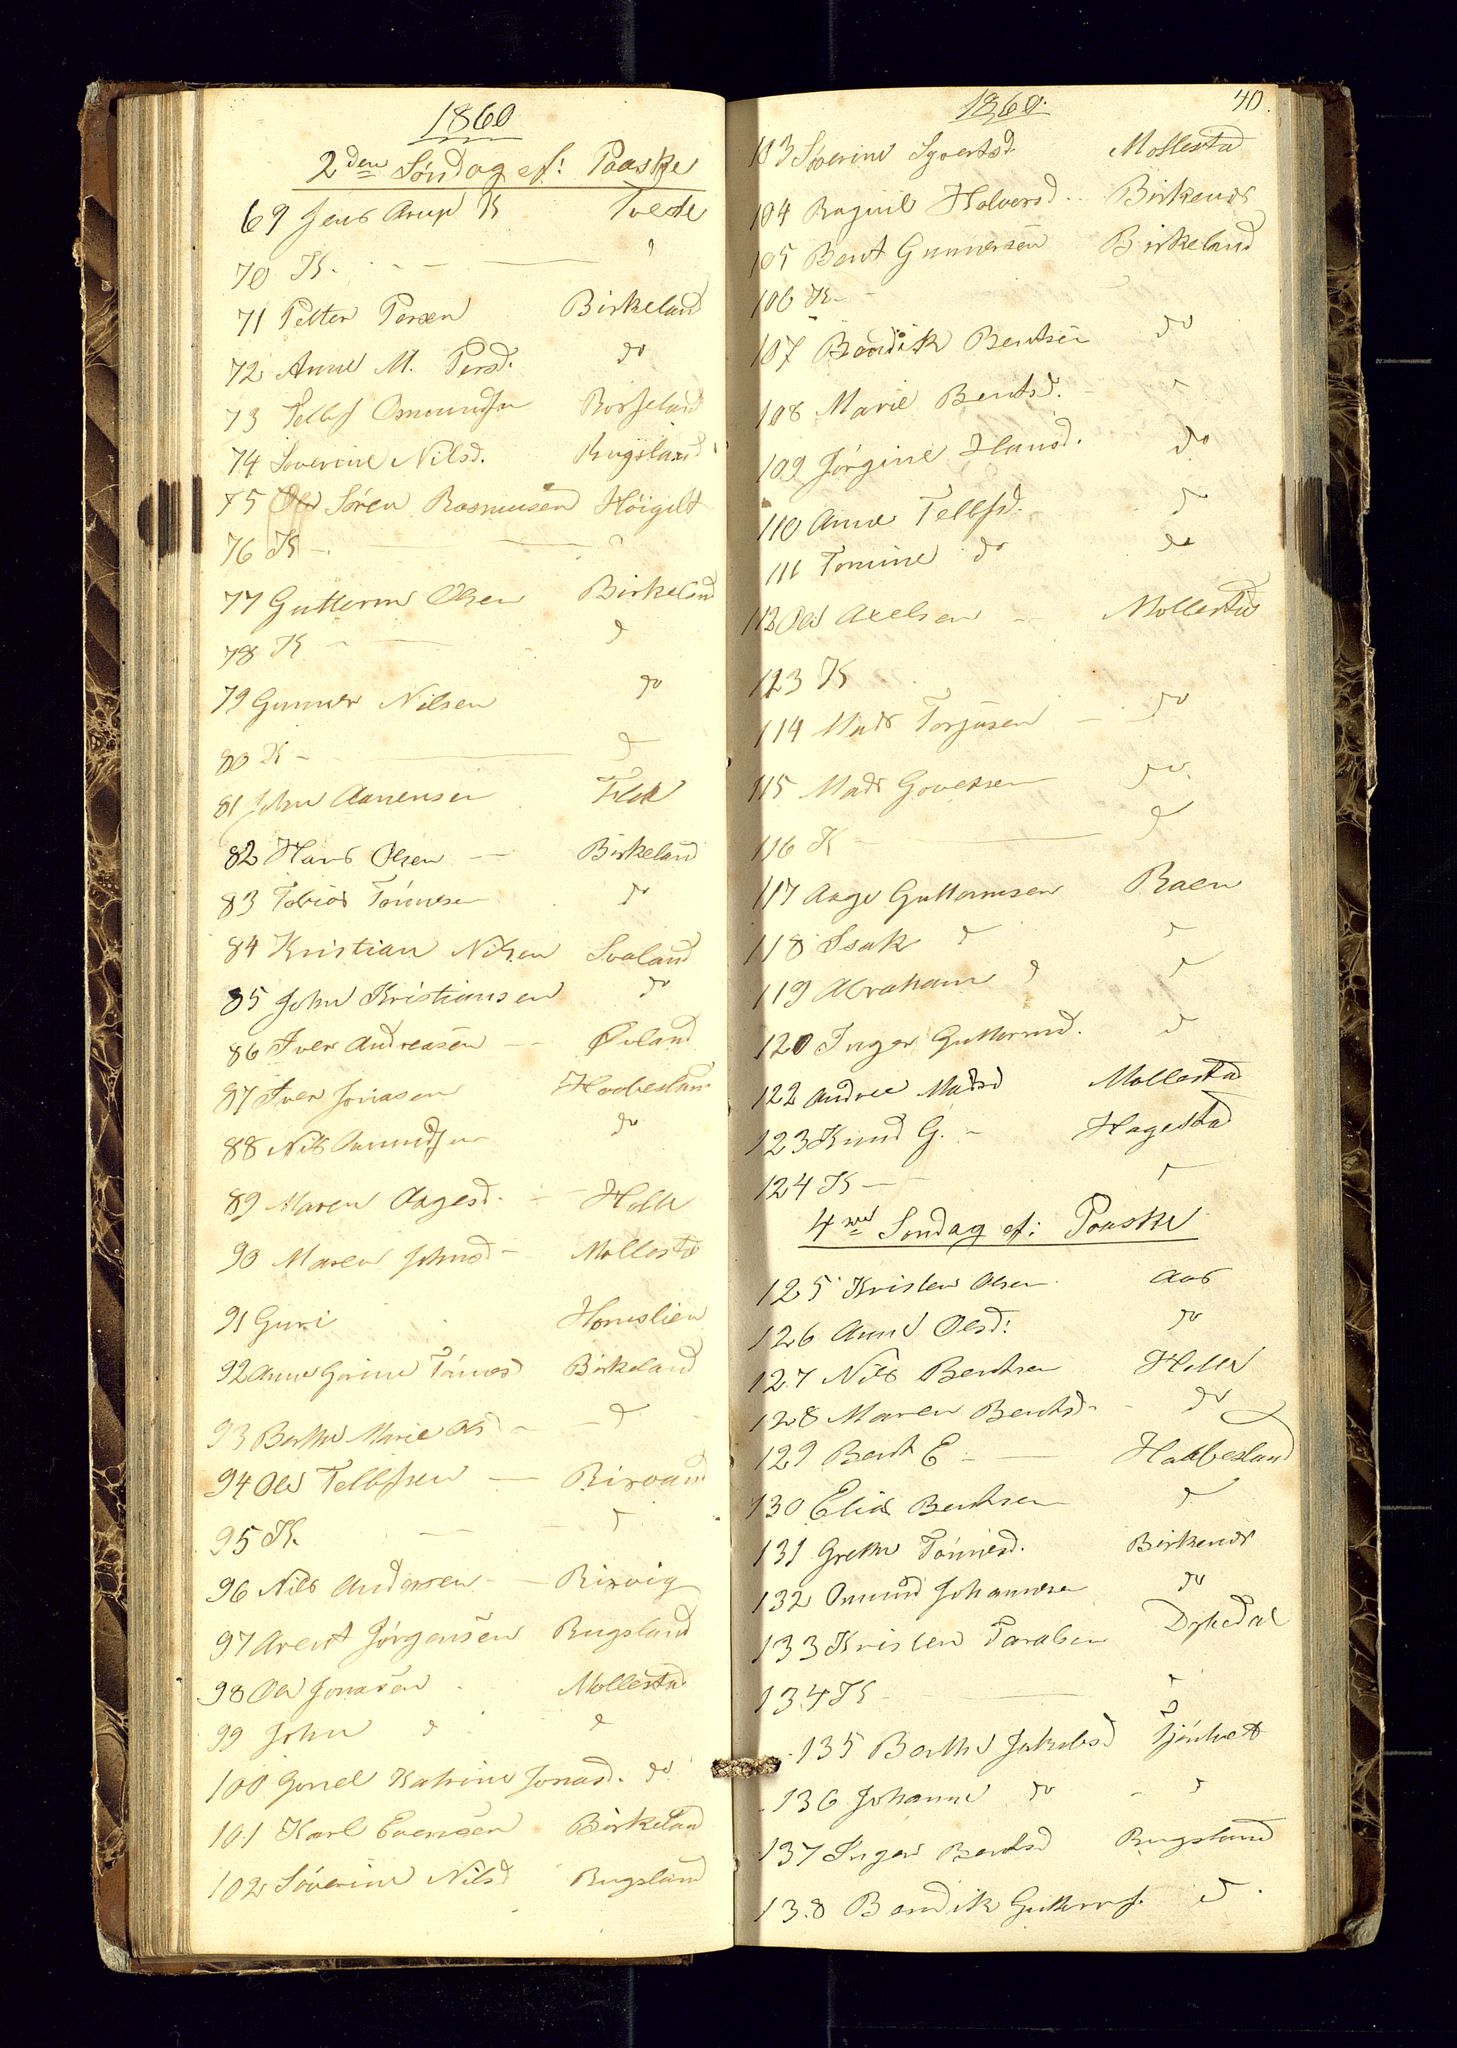 1860
2den Søndag ef: Paaske
69 Jens Arup K Tvede
70 K. - - "
71 Petter Persen Birkeland
72 Anne M. Persd. do
73 Tellef Omundsen
74 Soverine Nilsd. Rugsland
75 Søren Rasmusen Høigilt
76 K - - "
77 Guttorm Olsen Birkeland
78 K - - d
79 Gunner Nilsen do
80 K - d
81 John Aanensen
82 Hans Olsen - Birkeland
83 Tobias Tønnesen do
84 Kristian Nilsen Svaland
85 John Kristiansen do
86 Iver Andreasen - Øvland
87 Iver Jonasen
88 Nils Aamundsen do
89 Maren Aagesd. - Holte
90 Maren Johnsd - Mollestad
91 Guri Homslien
92 Anne Gorine Tønnesd Birkeland
93 Berthe Marie Olsd - - d
94 Ole Tellefsen - Birvand
95 K. - - d
96 Nils Andersen - Birvig
97 Arent Jørgensen Rugsland
98 Ole Jonasen Mollestad
99 John d d
100 Gonel Katrine Jonasd. do
101 Karl Evensen Birkeland
102 Søverine Nilsd Rugsland
1860. 40.
103 Søverine Syvertsd. Mollestad
104 Ragnil Halvorsd. Birkenes
105 Bent Gunnersen Birkeland
106 K -
107 Bendik Bentsen do
108 Marie Bentsd. - "
109 Jørgine Hansd. do
110 Anne Tellefsd. d
111 Tomine do do
112 Ole Axelsen - Mollestad
123 K
114 Mads Torjusen - do
115 Mads do
116 K - d
117 Aage Guttormsen Raen
118 Isak d d
119 Abraham d d
120 Inger Guttormsd. d
122 Andrea Madsd Mollestad
123 Knud G. - Hagestad
124 K - - d
4de Søndag ef: Paaske
125 Kristen Olsen Aas
126 Anne Olsd: do
127 Nils Bentsen Holte
128 Maren Bentsd. - do
129 Bent E - - Habbesland
130 Elias Bentsen d
131 Grethe Tønnesd. Birkenes
132 Omund Johannesen do
133 Kristen Taralsen Dykedal
134 K - "
135 Berthe Jakobsd
136 Johanne do - d
137 Inger Bentsd Rugsland
138 Bendik Guttorms. d